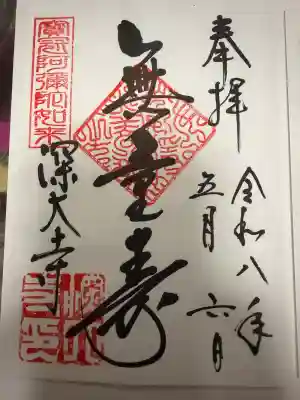 奉拝
令和八年
五月六日
無量寿
寶冠阿彌陀如来
深大寺